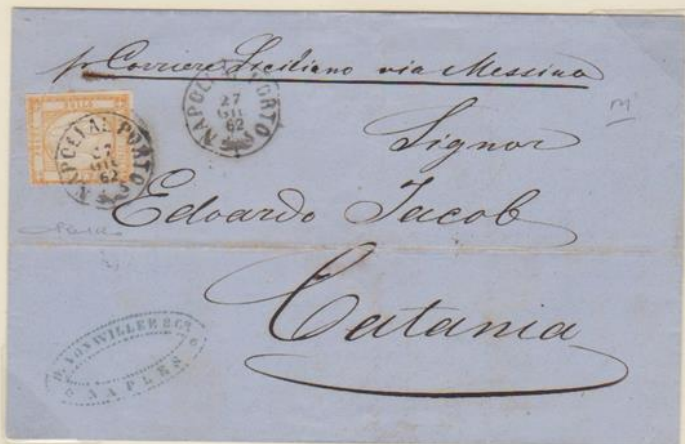 pr Corriere Siciliano via Messina
NAPOLI AL PORTO
27
GIU
62
NAPOLI AL PORTO
27
GIU
62
Signor
Edoardo Jacob
Catania
D. VONWILLER & Co.
NAPLES